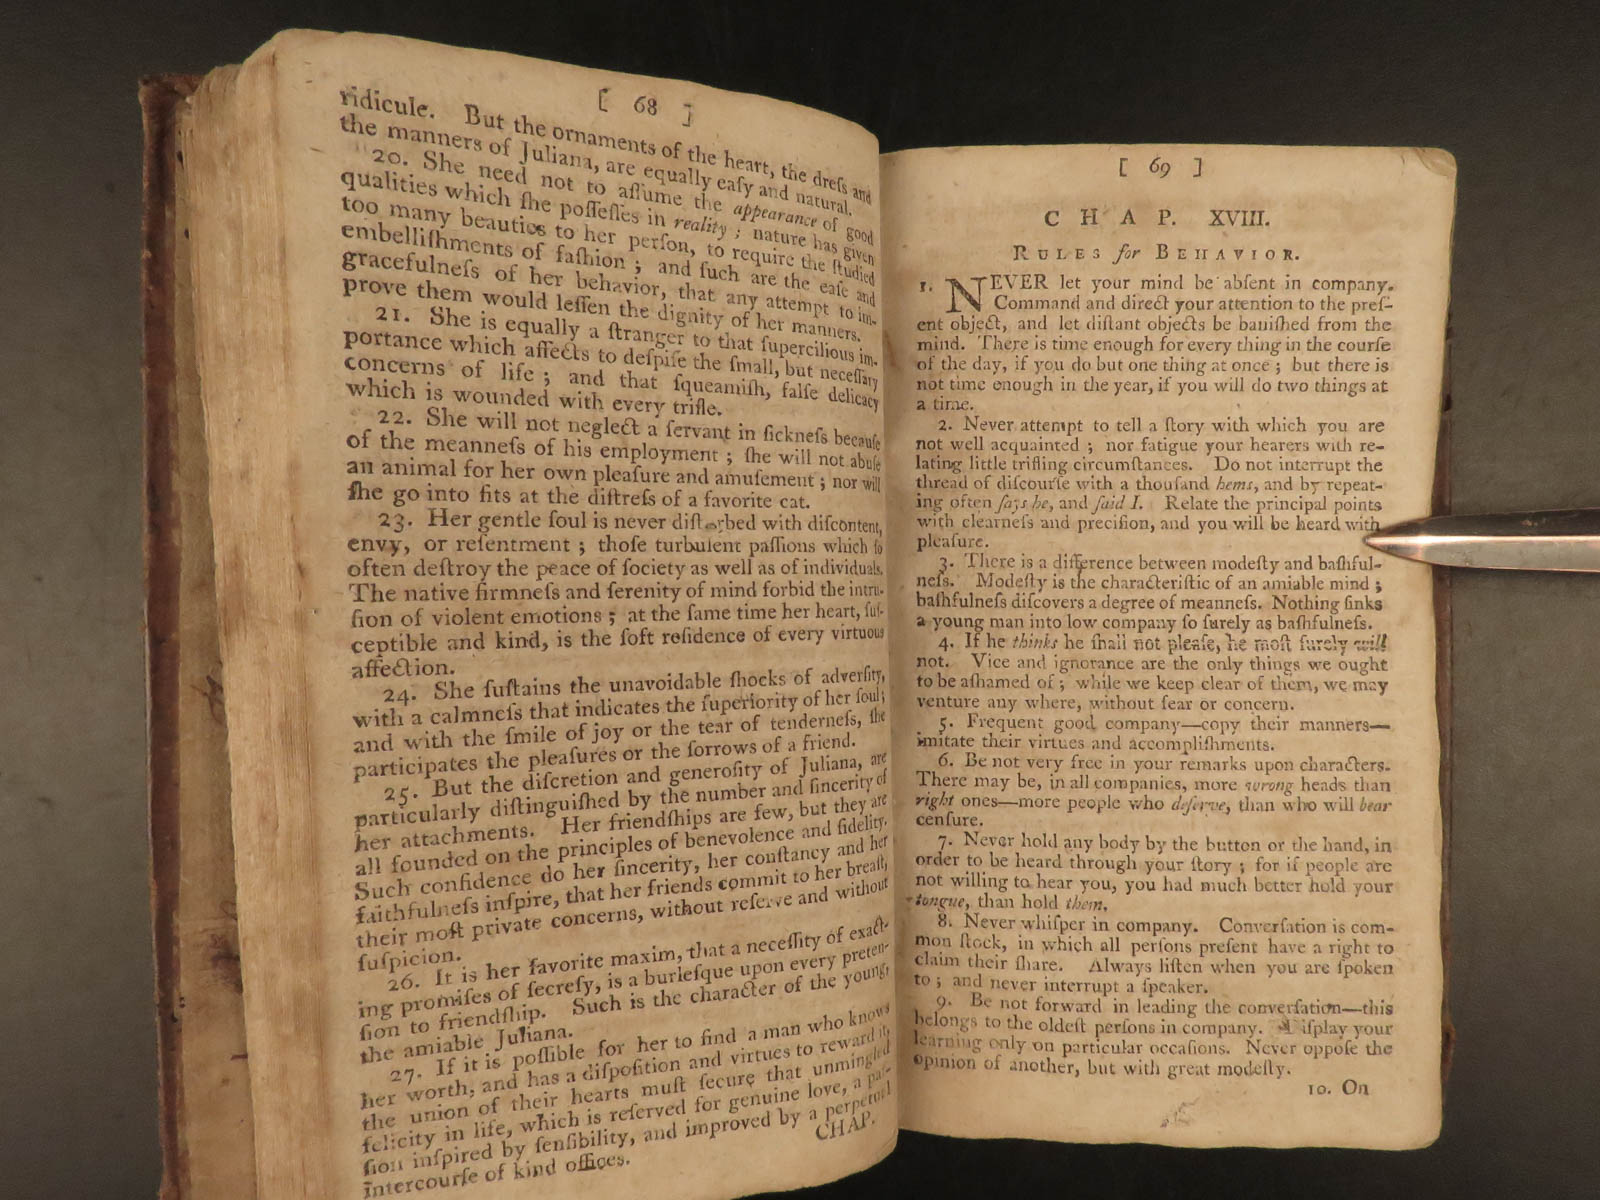 [ 68 ]
ridicule. But the ornaments of the heart, the dreſs and
the manners of Juliana, are equally eaſy and natural.
20. She need not to aſſume the appearance of good
qualities which ſhe poſſeſſes in reality ; nature has given
too many beauties to her perſon, to require the ſtudied
embelliſhments of faſhion ; and ſuch are the eaſe and
gracefulneſs of her behavior, that any attempt to im-
prove them would leſſen the dignity of her manners.
21. She is equally a ſtranger to that ſupercilious im-
portance which affects to deſpiſe the ſmall, but neceſſary
concerns of life ; and that ſqueamiſh, falſe delicacy
which is wounded with every trifle.
22. She will not neglect a ſervant in ſickneſs becauſe
of the meanneſs of his employment ; ſhe will not abuſe
an animal for her own pleaſure and amuſement ; nor will
ſhe go into fits at the diſtreſs of a favorite cat.
23. Her gentle ſoul is never diſturbed with diſcontent,
envy, or reſentment ; thoſe turbulent paſſions which ſo
often deſtroy the peace of ſociety as well as of individuals.
The native firmneſs and ſerenity of mind forbid the intru-
ſion of violent emotions ; at the ſame time her heart, ſuſ-
ceptible and kind, is the ſoft reſidence of every virtuous
affection.
24. She ſuſtains the unavoidable ſhocks of adverſity,
with a calmneſs that indicates the ſuperiority of her ſoul ;
and with the ſmile of joy or the tear of tenderneſs, ſhe
participates the pleaſures or the ſorrows of a friend.
25. But the diſcretion and generoſity of Juliana, are
particularly diſtinguiſhed by the number and ſincerity of
her attachments. Her friendſhips are few, but they are
all founded on the principles of benevolence and fidelity.
Such confidence do her ſincerity, her conſtancy and her
faithfulneſs inſpire, that her friends commit to her breaſt,
their moſt private concerns, without reſerve and without
ſuſpicion.
26. It is her favorite maxim, that a neceſſity of exact-
ing promiſes of ſecreſy, is a burleſque upon every preten-
ſion to friendſhip. Such is the character of the young,
the amiable Juliana.
27. If it is poſſible for her to find a man who knows
her worth, and has a diſpoſition and virtues to reward it,
the union of their hearts muſt ſecure that unmingled
felicity in life, which is reſerved for genuine love, a paſ-
ſion inſpired by ſenſibility, and improved by a perpetual
intercourſe of kind offices.
CHAP.
[ 69 ]
CHAP. XVIII.
RULES for BEHAVIOR.
1. NEVER let your mind be abſent in company.
Command and direct your attention to the preſ-
ent object, and let diſtant objects be baniſhed from the
mind. There is time enough for every thing in the courſe
of the day, if you do but one thing at once ; but there is
not time enough in the year, if you will do two things at
a time.
2. Never attempt to tell a ſtory with which you are
not well acquainted ; nor fatigue your hearers with re-
lating little trifling circumſtances. Do not interrupt the
thread of diſcourſe with a thouſand hems, and by repeat-
ing often ſays he, and ſaid I. Relate the principal points
with clearneſs and preciſion, and you will be heard with
pleaſure.
3. There is a difference between modeſty and baſhful-
neſs. Modeſty is the characteriſtic of an amiable mind ;
baſhfulneſs diſcovers a degree of meanneſs. Nothing ſinks
a young man into low company ſo ſurely as baſhfulneſs.
4. If he thinks he ſhall not pleaſe, he moſt ſurely will
not. Vice and ignorance are the only things we ought
to be aſhamed of ; while we keep clear of them, we may
venture any where, without fear or concern.
5. Frequent good company—copy their manners—
imitate their virtues and accompliſhments.
6. Be not very free in your remarks upon characters.
There may be, in all companies, more wrong heads than
right ones—more people who deſerve, than who will bear
cenſure.
7. Never hold any body by the button or the hand, in
order to be heard through your ſtory ; for if people are
not willing to hear you, you had much better hold your
tongue, than hold them.
8. Never whiſper in company. Converſation is com-
mon ſtock, in which all perſons preſent have a right to
claim their ſhare. Always liſten when you are ſpoken
to ; and never interrupt a ſpeaker.
9. Be not forward in leading the converſation—this
belongs to the oldeſt perſons in company. Diſplay your
learning only on particular occaſions. Never oppoſe the
opinion of another, but with great modeſty.
10. On